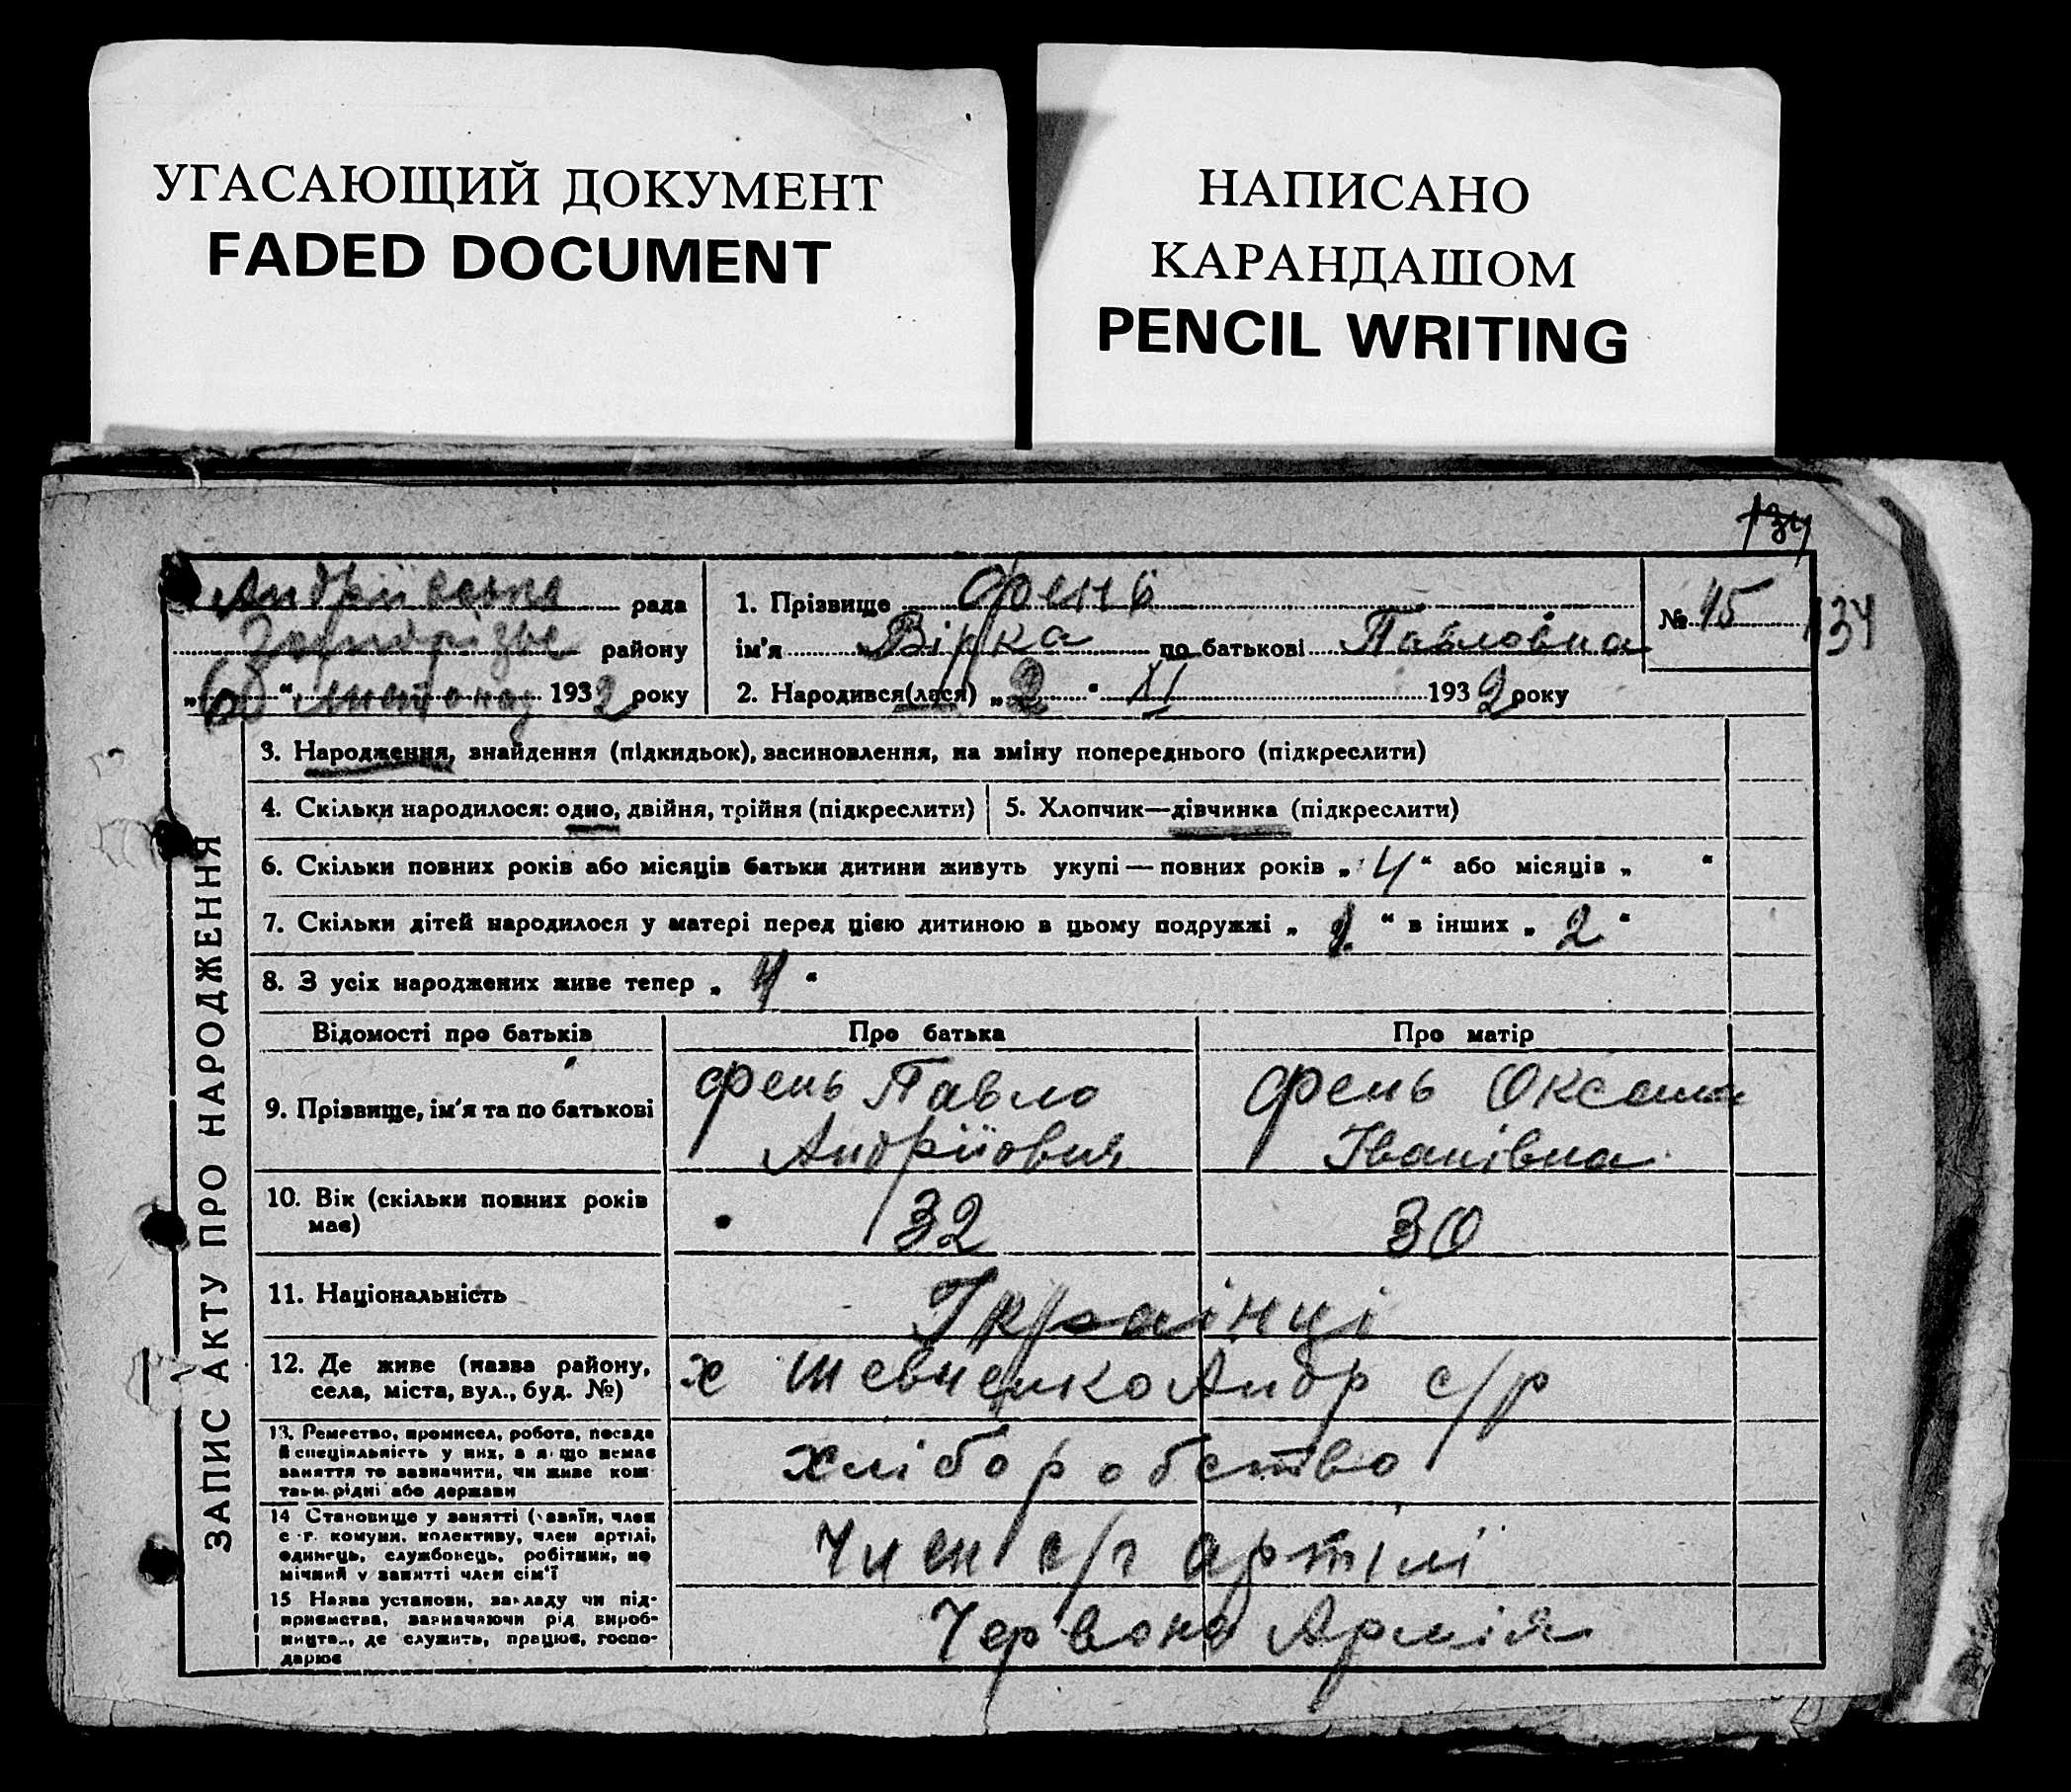 УГАСАЮЩИЙ ДОКУМЕНТ
FADED DOCUMENT
НАПИСАНО
КАРАНДАШОМ
PENCIL WRITING
134
Андріївська рада
району
„ “ листопад 1932 року
1. Прізвище Фень
ім'я Вірка по батькові Павловна
2. Народився(лася) „2“ XI 1932 року
№ 45
134
ЗАПИС АКТУ ПРО НАРОДЖЕННЯ
3. Народження, знайдення (підкидьок), засиновлення, на зміну попереднього (підкреслити)
4. Скільки народилося: одно, двійня, трійня (підкреслити)
5. Хлопчик—дівчинка (підкреслити)
6. Скільки повних років або місяців батьки дитини живуть укупі — повних років „ 4 “ або місяців „ “
7. Скільки дітей народилося у матері перед цією дитиною в цьому подружжі „ “ в інших „ 2 “
8. З усіх народжених живе тепер „ 4 “
Відомості про батьків
Про батька
Про матір
9. Прізвище, ім'я та по батькові
Фень Павло
Андрійович
Фень Оксана
Іванівна
10. Вік (скільки повних років
має)
32
30
11. Національність
Українці
12. Де живе (назва району,
села, міста, вул., буд. №)
х Шевченко Андр с/р
13. Ремество, промисел, робота, посада
й спеціяльність у них, а якщо немає
заняття то зазначити, чи живе кош-
там рідні або держави
хліборобство
14 Становище у занятті (хазяїн, член
с.-г. комуни, колективу, член артілі,
одинець, службовець, робітник, по
мічний у занятті член сім'ї
Член с/г артілі
15 Назва установи, закладу чи під-
приємства, зазначаючи рід вироб-
ництва, де служить, працює, госпо-
дарює
Червона Армія